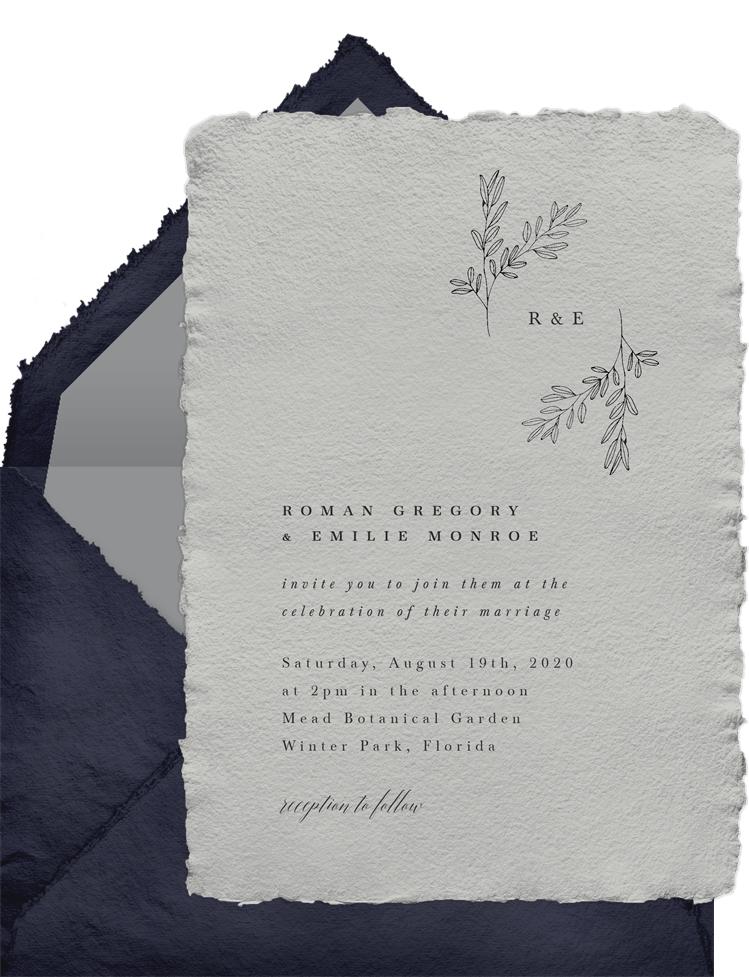 R & E
ROMAN GREGORY
& EMILIE MONROE
invite you to join them at the
celebration of their marriage
Saturday, August 19th, 2020
at 2pm in the afternoon
Mead Botanical Garden
Winter Park, Florida
reception to follow